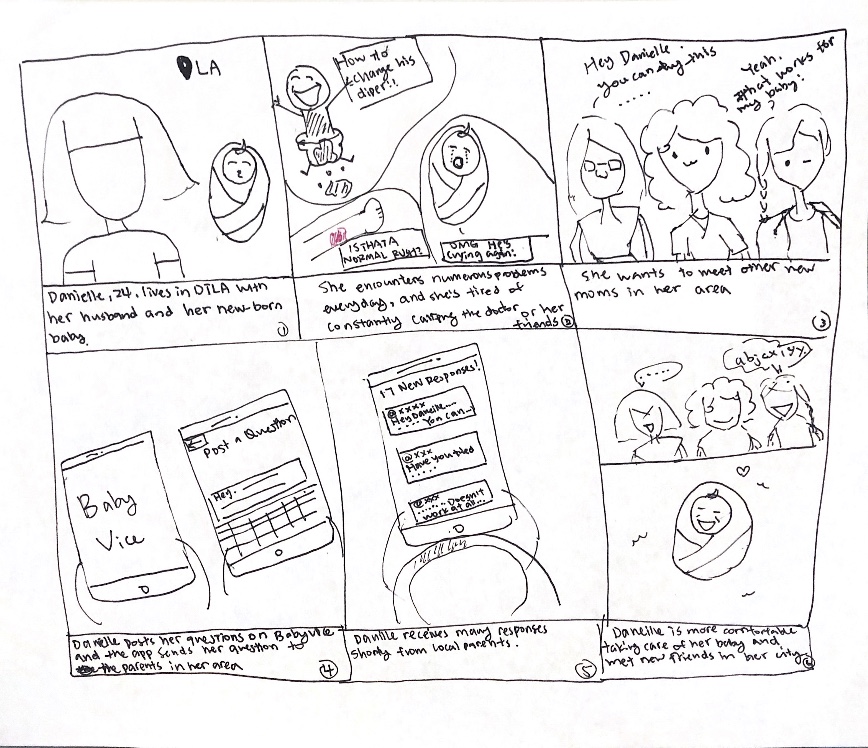 LA
Danielle, 24, lives in DTLA with
her husband and her new-born
baby.
1
How to
change his
diper!!
IS THAT A
NORMAL RUSH?
OMG He's
crying again!
She encounters numerous problems
everyday, and she's tired of
constantly calling the doctor or her
friends
2
Hey Danielle.
you can try this
......
Yeah.
that works for
my baby!
She wants to meet other new
moms in her area
3
Baby
Vice
Post a Question
Hey.
Danielle posts her questions on BabyVice
and the app sends her question to
the parents in her area
4
17 New Responses!
@xxxx
Hey Danielle....
..... You can...
@xxx
Have you tried
......
@xxx
........ Doesn't
work at all...
Danille receives many responses
shortly from local parents.
5
.....
abjcxiyy.
Danellie is more comfortable
taking care of her baby and
met new friends in her city.
6